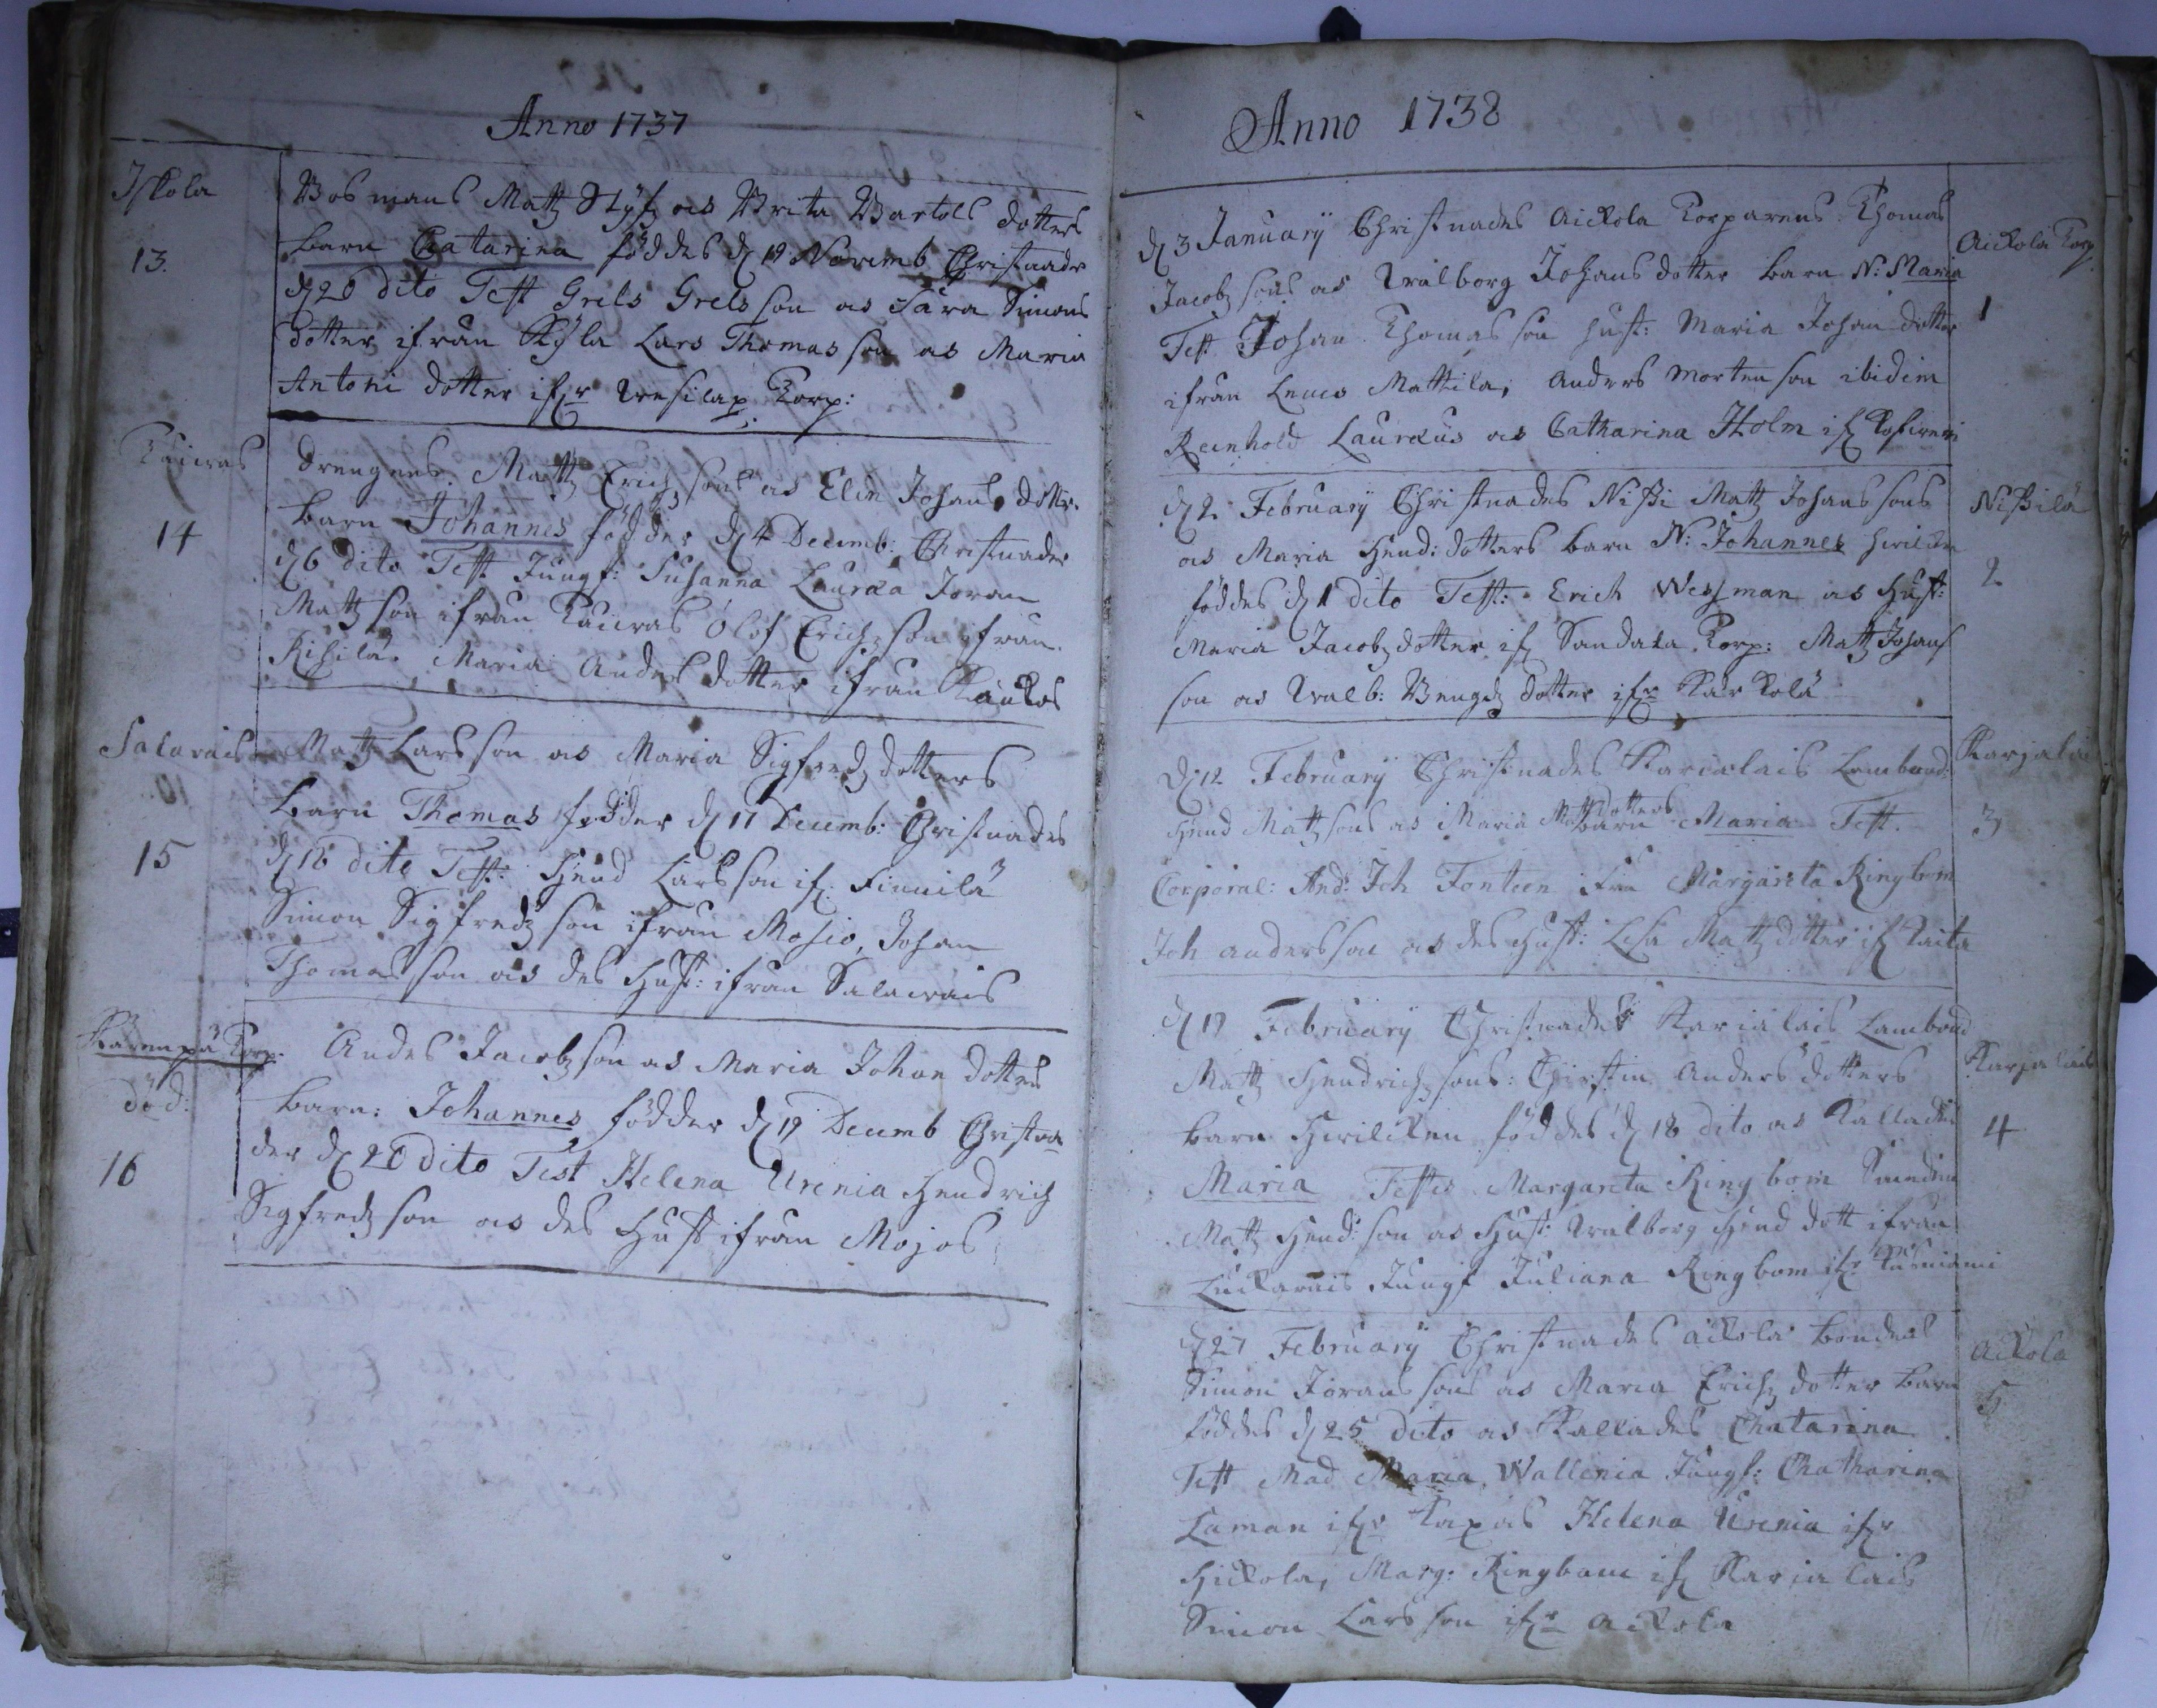 Anno 1737
Iskola
13.
Bosmans Matz Styf os Brita Bartols dotters
barn Catarina föddes d 19 Novemb Christnades
d 20 dito Test Grels Grelsson os Sara Simons
dotter ifrån Kÿla Lars Thomasson os Maria
Antoni dotter ifr Torp:
14
Drengens Matz Erichsons os Elin Johans dotters
barn Johannes födder d 4 Decemb: Christnades
d 6 dito Test Jungf: Susanna Lauræa Joran
Matzson ifrån Olof Erichson ifrån
Maria Anders dotter ifrån
15
Matz Larsson os Maria Sigfredz dotters
barn Thomas födder d 17 Decemb: Christnades
d 18 dito Test: Hend Larsson if. Finnilä
Simon Sigfredzson ifrån Johan
Thomasson os des Hust: ifrån Salavais
Torp:
död:
16
Anders Jacobzson os Maria Johan dotters
barn: Johannes födder d 19 Decemb Christna
der d 20 dito Test Helena Urenia Hendrich
Sigfredzson os des Hust ifrån Mojos
Anno 1738
d 3 Januarÿ Christnades Aickola Torparens Thomas
Jacobz sons os Walborg Johans dotter barn N: Maria
Test Johan Thomasson hust: Maria Johan dotter
ifrån Mattila, Anders Mortenson ibidem
Reinhold Lauræus os Catharina Holm if
Aickola Torp
1
d 2 Februarÿ Christnades Nißi Matz Johanssons
os Maria Hend: dotters barn N: Johannes hvilken
föddes d 1 dito Test: Erich Wessman os Hust:
Maria Jacobz dotter if Sandaka Torp: Matz Johans
son os Walb: Bengdz dotter ifr Kärkolä
Nißilä
2
d 12 Februarÿ Christnades Karialais Lambond:
Hend Matzsons os Maria Matz dotters barn Maria Test.
Corporal: And: Joh Fonteen Fru Margareta Ringbom
Joh andersson os des Hust: Lisa Matz dotter if
Karjalais
3
d 19 Februarÿ Christnades Karialais Lambond
Matz Hendrichsons: Christin Anders dotters
barn Hvilcken föddes d 18 dito os Kallades
Maria Testes Margareta Ringbom
Matz Hend: son os Hust: Walborg Hend dott ifrån
Jungf Juliana Ringbom ifr
Karjalais
4
d 27 Februarÿ Christnades aickola bondens
Simon Joransons os Maria Erichz dotter barn
föddes d 25 dito os Kallades Chatarina
Test Mad Maria Wallenia Jungf: Chatharina
Laman ifr Helena Urenia ifr
Hickola, Marg: Ringbom if Karialais
Simon Larsson ifr aickola
Aickola
5